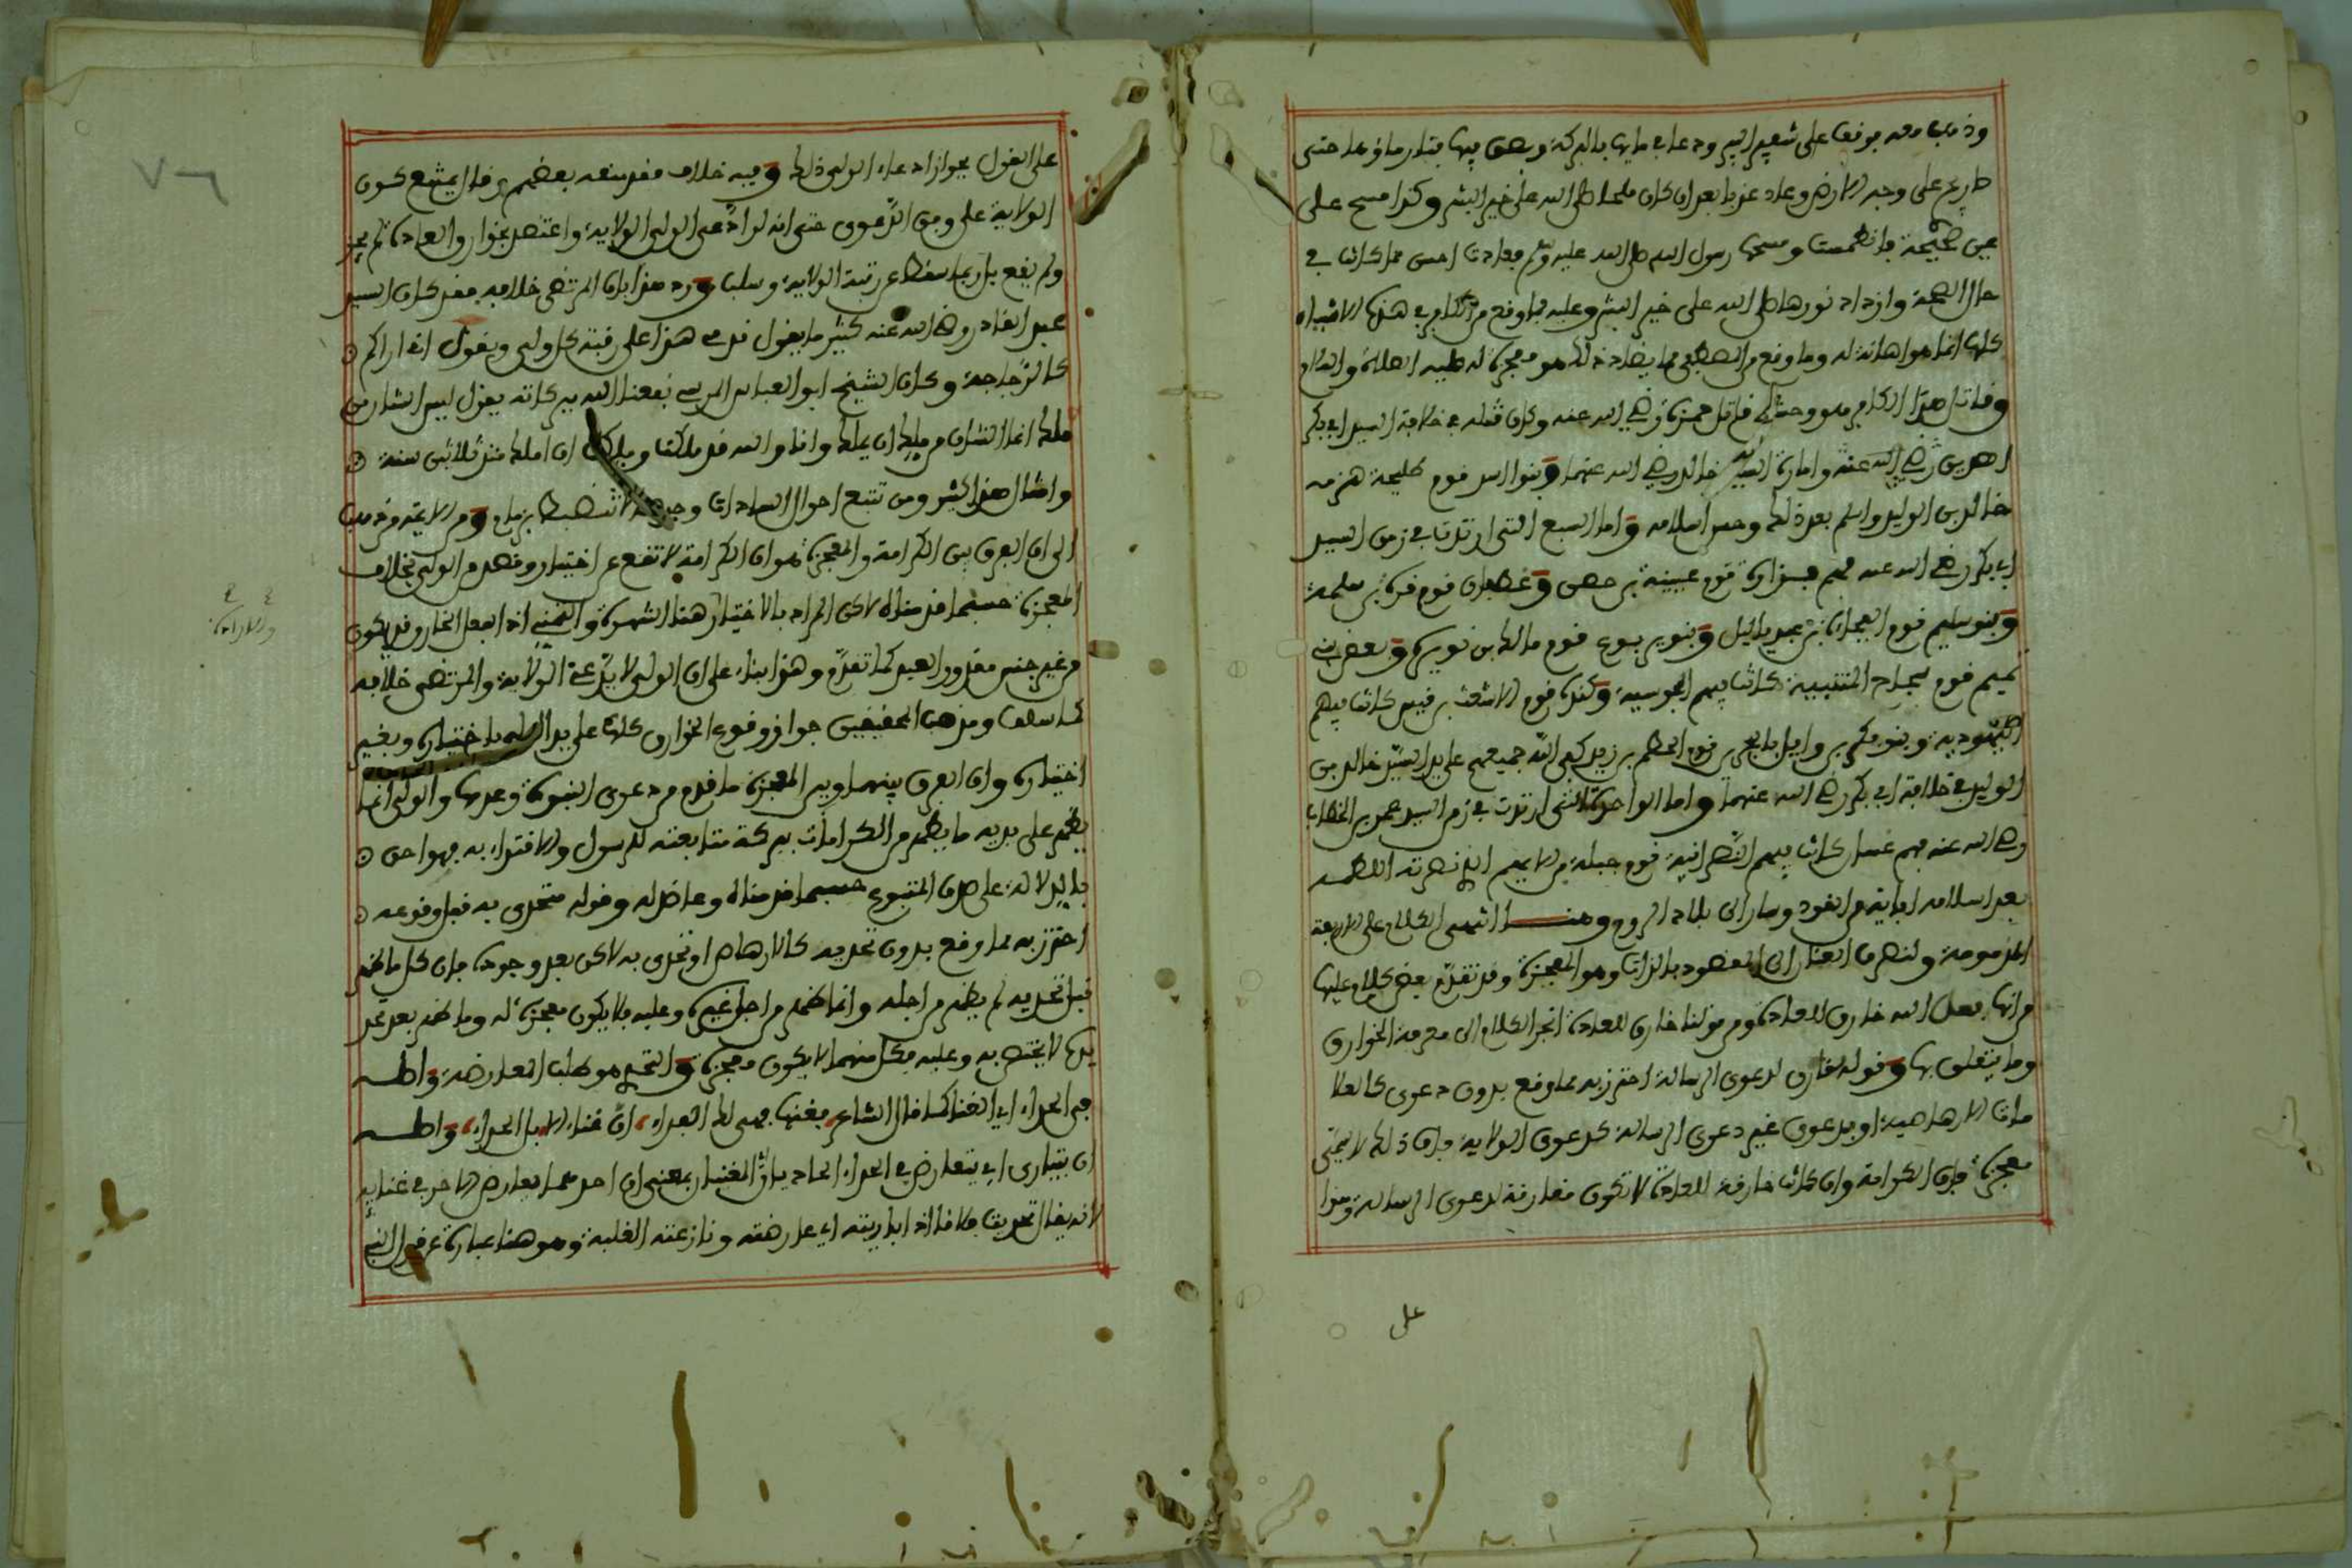 وذهب معه بوقف على شفير البير ودعا في مايها بالبركة وبصق فيها فغار ماؤها حتى
طارع على وجه الارض وعاد عذبا بعد ان كان ملحا صلى الله على خير البشر وكذا مسح على
عين صحيحة فانطمست ومسحها رسول الله صلى الله عليه وسلم فعادت احسن مما كانت في
حال الصحة وازداد نورها صلى الله على خير البشر وعليه فما وقع من الكافر في هذه الاشياء
كلها انما هو اهانة له وما وقع من المصطفى مما يضاد ذلك هو معجزة له عليه الصلاة والسلام
وقاتل هذا الكافر هو وحشي قاتل حمزة رضي الله عنه وكان قتله في خلافة السيد ابي بكر
الصديق رضي الله عنه وامارة السيد خالد رضي الله عنهما وبنوا اسد قوم طليحة هزمه
خالد بن الوليد واسلم بعد ذلك وحسن اسلامه واما السبع التي ارتدت في زمن السيد
ابي بكر رضي الله عنه فهم فزارة قوم عيينة بن حصن وغطفان قوم قرة بن سلمة
وبنو سليم قوم الفجاءة بن عبد ياليل وبنو يربوع قوم مالك بن نويرة وبعض بني
تميم قوم سجاح المتنبية كانت فيهم المجوسية وكندة قوم الاشعث بن قيس كانت فيهم
اليهودية وبنو بكر بن وايل بالبحرين قوم الحطم بن زيد كفى الله جميعهم على يد السيد خالد بن
الوليد في خلافة ابي بكر رضي الله عنهما واما الواحدة التي ارتدت في زمن السيد عمر بن الخطاب
رضي الله عنه فهم غسان كانت فيهم النصرانية قوم جبلة بن الايهم الذي نصرته اللطمة
بعد اسلامه اباية من القود وسار الى بلاد الروم وهنا انتهى الكلام على الاربعة
المذمومة ولنصرف العنان الى المقصود بالذات وهو المعجزة وقد تقدم بعض كلام عليها
من انها فعل الله خارق للعادة ومن قولنا خارق للعادة انجر الكلام الى معرفة الخوارق
وما يتعلق بها وقوله مقارن لدعوى الرسالة احترز به مما وقع بدون دعوى كالعلا
مات الارهاصية او بدعوى غير دعوى الرسالة كدعوى الولاية فان ذلك لا يسمى
معجزة فان الكرامة وان كانت خارقة للعادة لا تكون مقارنة لدعوى الرسالة وهذا
على
على القول بجواز ادعاء الولي ذلك وفيه خلاف فقد منعه بعضهم وقال يمتنع كون
الولاية على وفق الدعوى حتى انه لو ادعى الولي الولاية واعتضد بخوارق العادة لم يجز
ولم يقع بل ربما سقط عن رتبة الولاية وسلب ورد هذا بان المرتضى خلافه فقد كان السيد
عبد القادر رضي الله عنه كثير ما يقول قدمي هذا على رقبة كل ولي ويقول اني اراكم
كالزجاجة وكان الشيخ ابو العباس المرسي نفعنا الله ببركاته يقول ليس الشان من
ملك انما الشان من ملك ان يملك وانا والله قد ملكت وملكت ان املك منذ ثلاثين سنة
وامثال هذا كثير ومن تتبع احوال السادات وجد منه لا تنضبط بزمام ومن الايمة من ذهب
الى ان الفرق بين الكرامة والمعجزة هو ان الكرامة لا تقع عن اختيار وقصد من الولي بخلاف
المعجزة حسبما قدمناه لاكن المراد بالاختيار هنا الشهوة والتمني اذ الفعل الخارق قد يكون
والارادة
من غير جنس مقدور العبد كما تقدم وهذا بناء على ان الولي لا يدعي الولاية والمرتضى خلافه
كما سلف ومذهب المحققين جواز وقوع الخوارق كلها على يد الولي باختياره وبغير
اختياره وان الفرق بينهما وبين المعجزة ما قدم من دعوى النبوة وعدمها والولي انما
يظهر على يديه ما يظهر من الكرامات ببركة متابعته للرسول والاقتداء به فهو احق
بالدلالة على صدق المتبوع حسبما قدمناه وعاضد له وقوله متحدى به قبل وقوعه
احترز به مما وقع بدون تحديه كالارهاص او تحدى به لاكن بعد وجوده فان كل ما ظهر
قبل تحديه لم يظهر من اجله وانما ظهر من اجل غيره وعليه فلا يكون معجزة له وما ظهر بعد تحد
يه لا يختص به وعليه فكل منهما لا يكون معجزة والتحدي هو طلب المعارضة واصله
من الحداء اي الغنا كما قال الشاعر فغنها فهي لك الفداء ان غناء الابل الحداء واصله
ان يتبارى اي يتعارض في الحداء الحاديان المغنيان بمعنى ان احدهما يعارض الاخر في غنايه
لانه يقال تحديت فلانا اذا باريته اي عارضته ونازعته الغلبة وهو هنا عبارة عن قول النبي